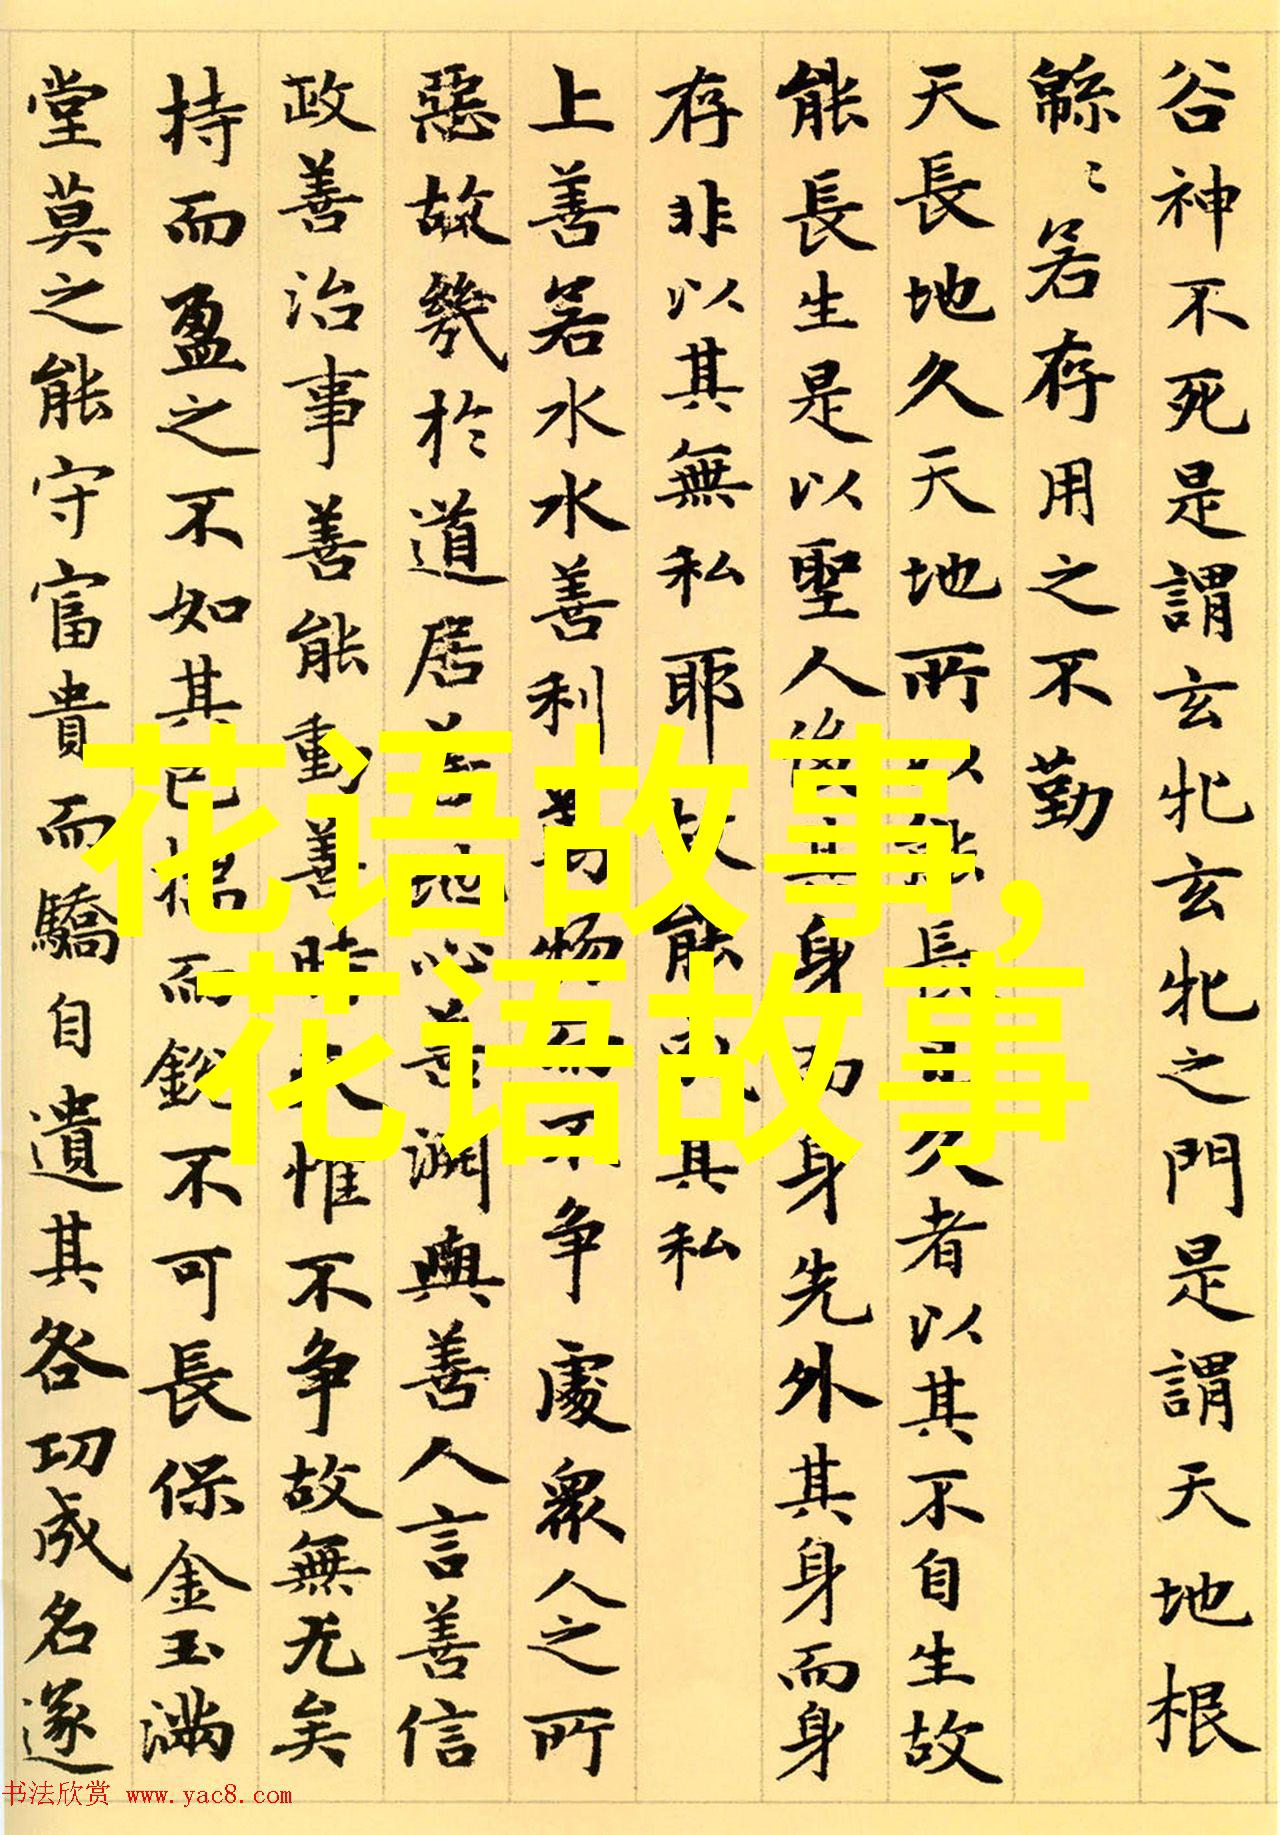 谷神不死是謂玄牝玄牝之門是謂天地根
緜〻若存用之不勤
天長地久天地所以能長且久者以其不自生故
能長生是以聖人後其身而身先外其身而身
存非以其無私耶故能成其私
上善若水水善利萬物而不争處衆人之所
惡故幾於道居善地心善淵與善人言善信
政善治事善能動善時夫惟不争故無尤矣
持而盈之不如其已揣而銳不可長保金玉滿
堂莫之能守富貴而驕自遺其咎功成名遂
花语故事,
花语故事
书法欣赏 www.yac8.com